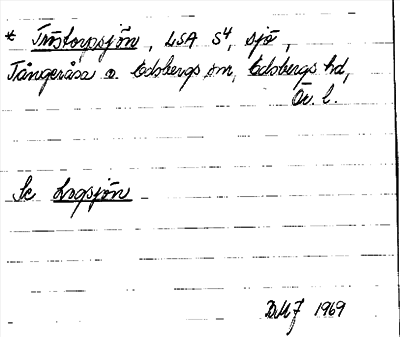 * Tröstorpsjön, LSA S4, sjö,
Tångeråsa o. Edsbergs sn, Edsbergs hd,
Ör. l.
Se Logsjön
DMJ 1969